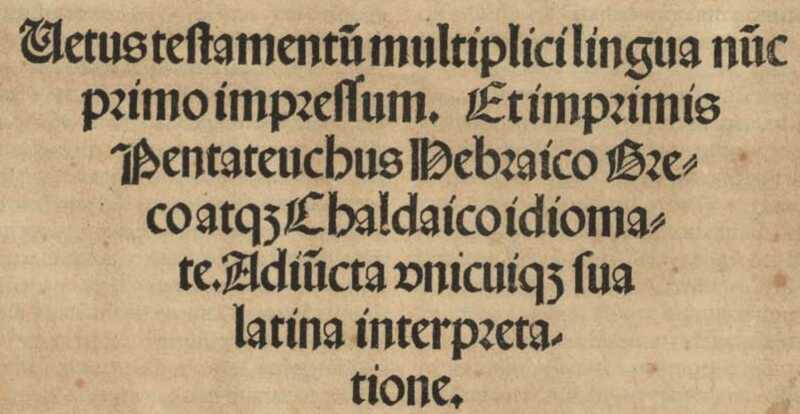 Uetus testamentū multiplici lingua nūc
primo impressum. Et imprimis
Pentateuchus Hebraico Gre⸗
co atqꝫ Chaldaico idioma⸗
te. Adiūcta vnicuiqꝫ sua
latina interpreta⸗
tione.